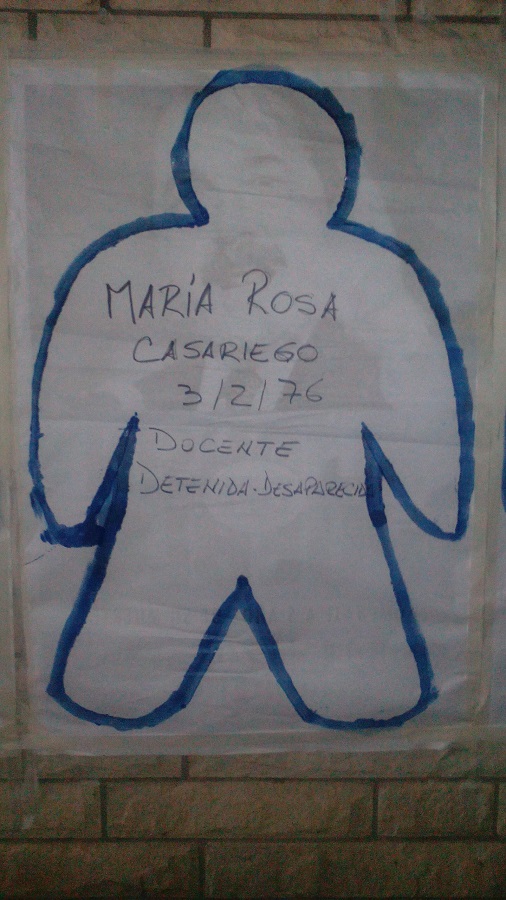 MARÍA ROSA
CASARIEGO
3/2/76
DOCENTE
DETENIDA-DESAPARECIDA